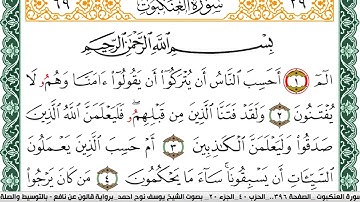 ٣٩ سورة العنكبوت ٦٩
بِسْمِ اللَّهِ الرَّحْمَٰنِ الرَّحِيمِ
الٓمٓ ١ أَحَسِبَ النَّاسُ أَن يُتْرَكُوا أَن يَقُولُوا ءَامَنَّا وَهُمُ لَا
يُفْتَنُونَ ٢ وَلَقَدْ فَتَنَّا الَّذِينَ مِن قَبْلِهِمُ فَلَيَعْلَمَنَّ اللَّهُ الَّذِينَ
صَدَقُوا وَلَيَعْلَمَنَّ الْكَٰذِبِينَ ٣ أَمْ حَسِبَ الَّذِينَ يَعْمَلُونَ
السَّيِّـَٔاتِ أَن يَسْبِقُونَا سَآءَ مَا يَحْكُمُونَ ٤ مَن كَانَ يَرْجُوا
سورة العنكبوت الصفحة ٣٩٦.. الحزب ٤٠.. الجزء ٢٠.. بصوت الشيخ يوسف نوح احمد برواية قالون عن نافع - بالتوسيط والصلة